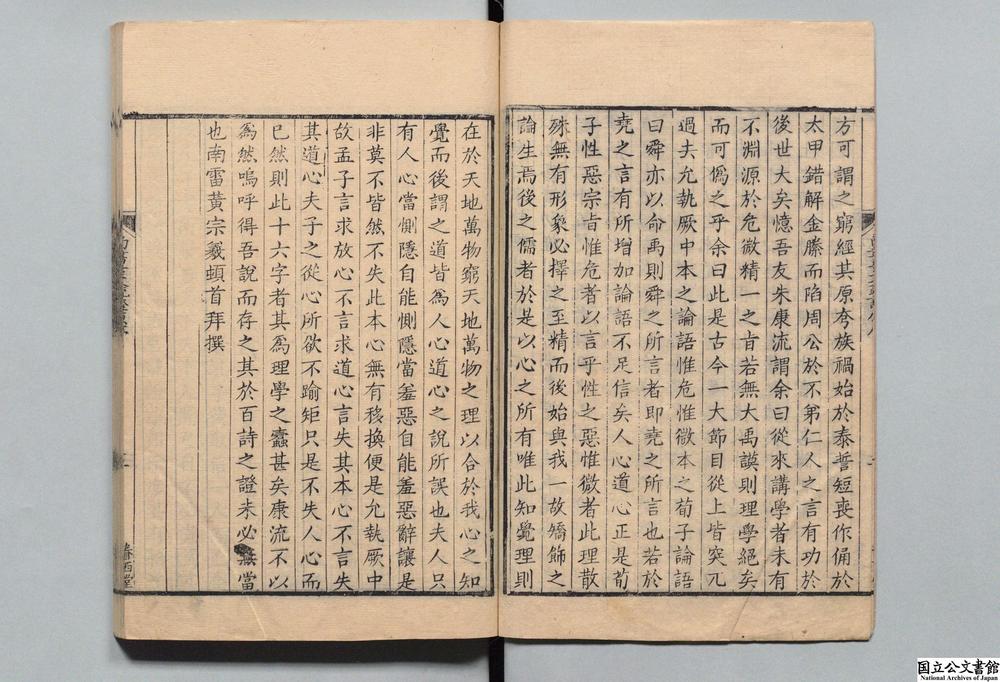 方可謂之窮經其原夸族禍始於泰誓短喪作俑於
太甲錯解金縢而陷周公於不弟仁人之言有功於
後世大矣憶吾友朱康流謂余曰從來講學者未有
不淵源於危微精一之旨若無大禹謨則理學絕矣
而可僞之乎余曰此是古今一大節目從上皆突兀
過去允執厥中本之論語惟危惟微本之荀子論語
曰舜亦以命禹則舜之所言者即堯之所言也若於
堯之言有所增加論語不足信矣人心道心正是荀
子性惡宗旨惟危者以言乎性之惡惟微者此理散
殊無有形象必擇之至精而後始與我一故矯飾之
論生焉後之儒者於是以心之所有唯此知覺理則
在於天地萬物窮天地萬物之理以合於我心之知
覺而後謂之道皆爲人心道心之說所誤也夫人只
有人心當惻隱自能惻隱當羞惡自能羞惡辭讓是
非莫不皆然不失此本心無有移換便是允執厥中
故孟子言求放心不言求道心言失其本心不言失
其道心夫子之從心所欲不踰矩只是不失人心而
已然則此十六字者其爲理學之蠹甚矣康流不以
爲然嗚呼得吾說而存之其於百詩之證未必無當
也南雷黃宗羲頓首拜撰
眷西堂
国立公文書館
National Archives of Japan